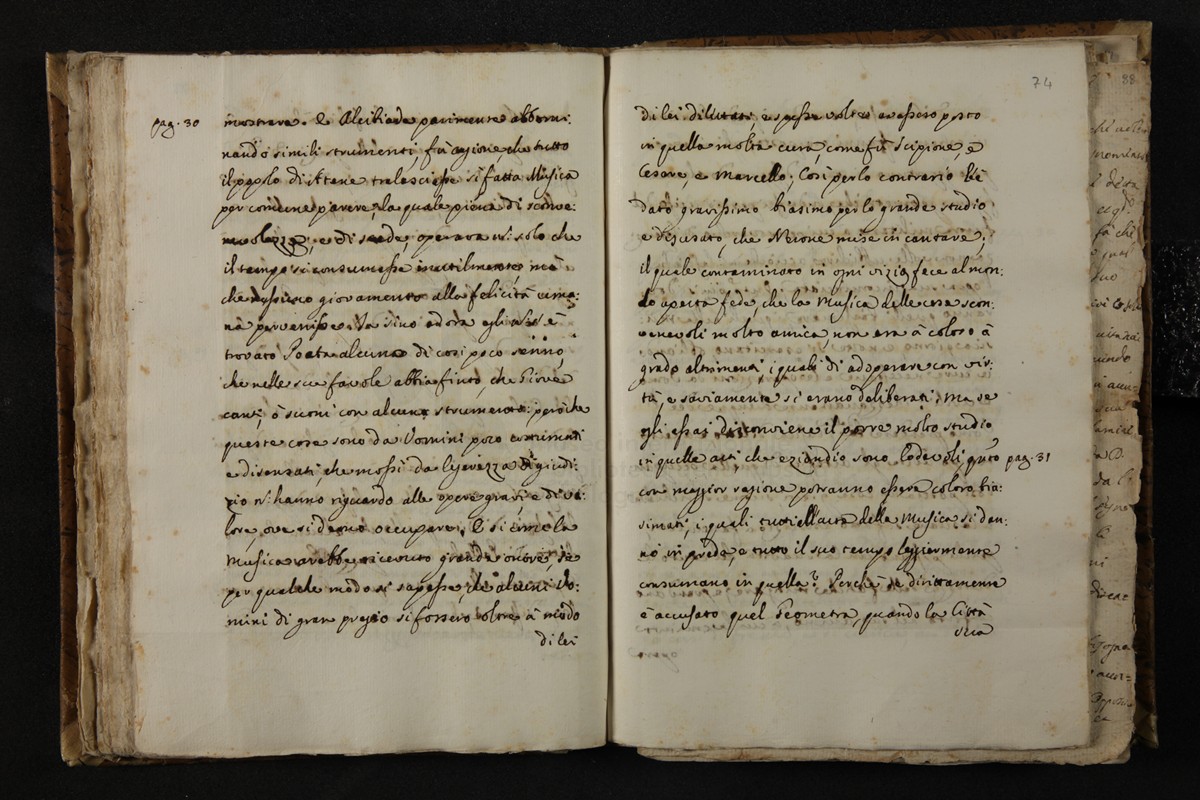 pag. 30
mostrare. E Alcibiade parimente abbomi:
nando simili strumenti, fù cagione, che tutto
il popolo di Atene tralasciasse si fatta Musica
per comune parere, la quale piena di sconve:
nevolezza, e di operava nᵒ: solo che
il tempo si consumasse inutilmente mà
che nessuno giovamento alla felicità uma:
na pervenisse. Ia sino adora egli nᵒ: s'è
trovato Poeta alcuno di così poco senno,
che nelle sue favole abbia finto, che Giove
canti, ò suoni con alcuno strumento: però che
queste cose sono da Uomini poco
e disensati, che mossi da legerezza di giudi:
zio nᵒ: hanno riguardo alle opere gravi e di va:
lore, ove si deono occupare. E si come la
Musica avrebbe ricevuto grande onore, se
per qualche modo si sapesse, che alcuni Uo:
mini di gran pregio si fossero oltre à modo
di lei
74
di lei dilettati, e spesse volte avessero posto
in quella molta cura, come fù Scipione, e
Cesare, e Marcello; Così per lo contrario l'è
dato gravissimo biasimo per lo grande studio
e disusato, che Nerone mise in cantare;
il quale contaminato in ogni vizio, fece al mon:
do aperta fede, che la Musica delle cose scon:
venevoli molto amica, non era à coloro à
grado altrimenti, i quali di adoperare con vir:
tù, e saviamente si erano deliberati. Ma se
egli assai disconviene il porre molto studio
in quelle arti, che eziandio sono lodevoli, quãto pag. 31
con maggior ragione potranno essere coloro bia:
simati, i quali tutti ell'arte della Musica si dan:
no in preda, e tutto il suo tempo leggiermente
consumano in quella? Perchè se dirittamente
è accusato quel Geometra, quando la Città
sua